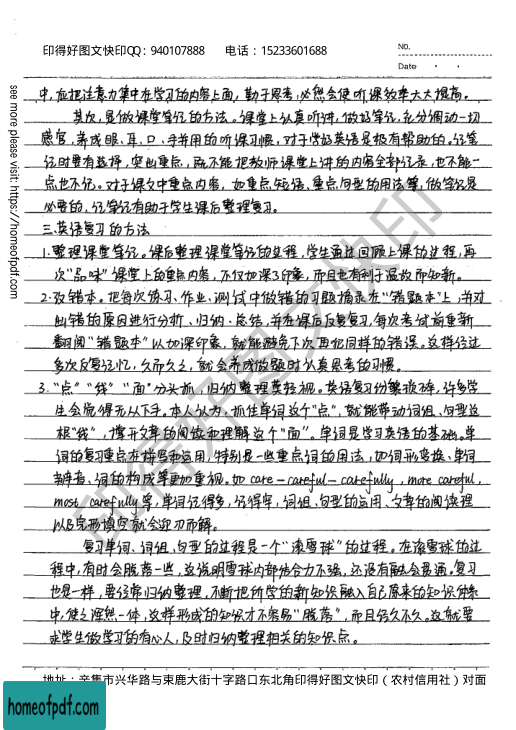 印得好图文快印QQ：940107888 电话：15233601688
NO.
Date
see more please visit: https://homeofpdf.com
中,应把注意力集中在学习的内容上面,勤于思考,必然会使听课效率大大提高。
其次,是做课堂笔记的方法。课堂上认真听讲,做好笔记,充分调动一切
感官,养成眼、耳、口、手并用的听课习惯,对于学好英语是极有帮助的。记笔
记时要有选择,突出重点,既不能把教师课堂上讲的内容全部记录,也不能一
点也不记。对于课文中重点内容,如重点短语、重点句型的用法等,做笔记是
必要的,记笔记有助于学生课后整理复习。
三.英语复习的方法
1.整理课堂笔记。课后整理课堂笔记的过程,学生通过回顾上课的过程,再
次“品味”课堂上的重点内容,不仅加深了印象,而且也有利于温故而知新。
2.改错本。把每次练习、作业、测试中做错的习题摘录在“错题本”上,并对
出错的原因进行分析、归纳、总结,并在课后反复复习,每次考试前重新
翻阅“错题本”以加深印象,就能避免下次再犯同样的错误。这样经过
多次反复记忆,久而久之,就会养成做题时认真思考的习惯。
3.“点”“线”“面”分头抓,归纳整理莫轻视。英语复习纷繁琐碎,许多学
生会觉得无从下手。本人认为,抓住单词这个“点”,就能带动词组、句型这
根“线”,撑开文章的阅读和理解这个“面”。单词是学习英语的基础。单
词的复习重点在拼写和运用,特别是一些重点词的用法,如词形变换、单词
辨音、词的构成等更加重视。如care-careful-carefully,more careful,
most carefully等,单词记得多,记得牢,词组、句型的运用、文章的阅读理
以及完形填空就会迎刃而解。
复习单词、词组、句型的过程是一个“滚雪球”的过程。在滚雪球的过
程中,有时会脱落一些,这说明雪球内部结合力不强,还没有融会贯通。复习
也是一样,要经常归纳整理,不断把所学的新知识融入自己原来的知识体系
中,使之浑然一体,这样形成的知识才不容易“脱落”,而且经久不久。这就要
求学生做学习的有心人,及时归纳整理相关的知识点。
印得好图文快印
地址：辛集市兴华路与束鹿大街十字路口东北角印得好图文快印（农村信用社）对面
homeofpdf.com